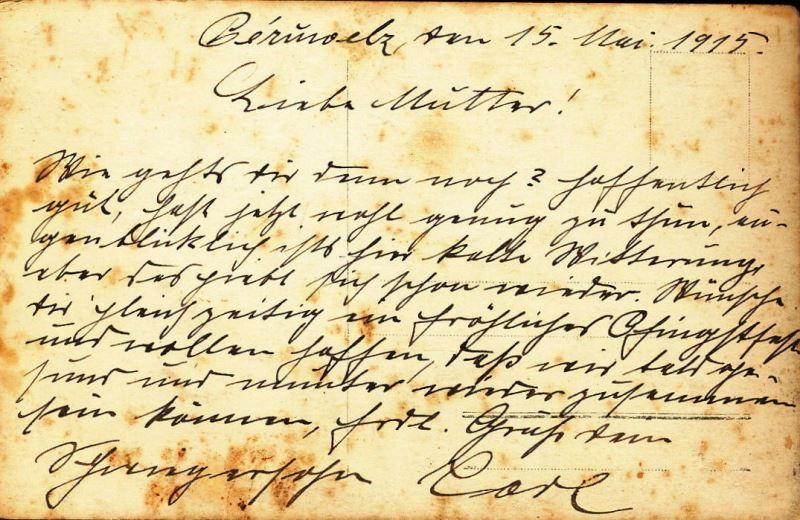 Péruwelz, den 15. Mai. 1915.
Liebe Mutter!
Wie gehts dir denn noch? hoffentlich
gut, hast jetzt wohl genug zu thun, au-
genblicklich ists hier kalte Witterung,
aber das giebt sich schon wieder. Wünsche
dir gleichzeitig ein fröhliches Pfingstfest
und wollen hoffen, daß wir bald ge-
sund und munter wieder zusammen
sein können, frdl. Gruß dein
Schwiegersohn Carl